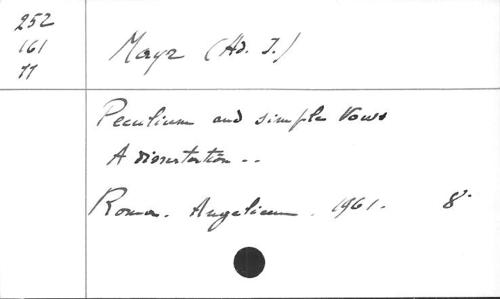 252
161
77
Mayr (Ad. J.)
Peculium and simple Vows
A dissertation --
Romae. Angelicum. 1961. 8°